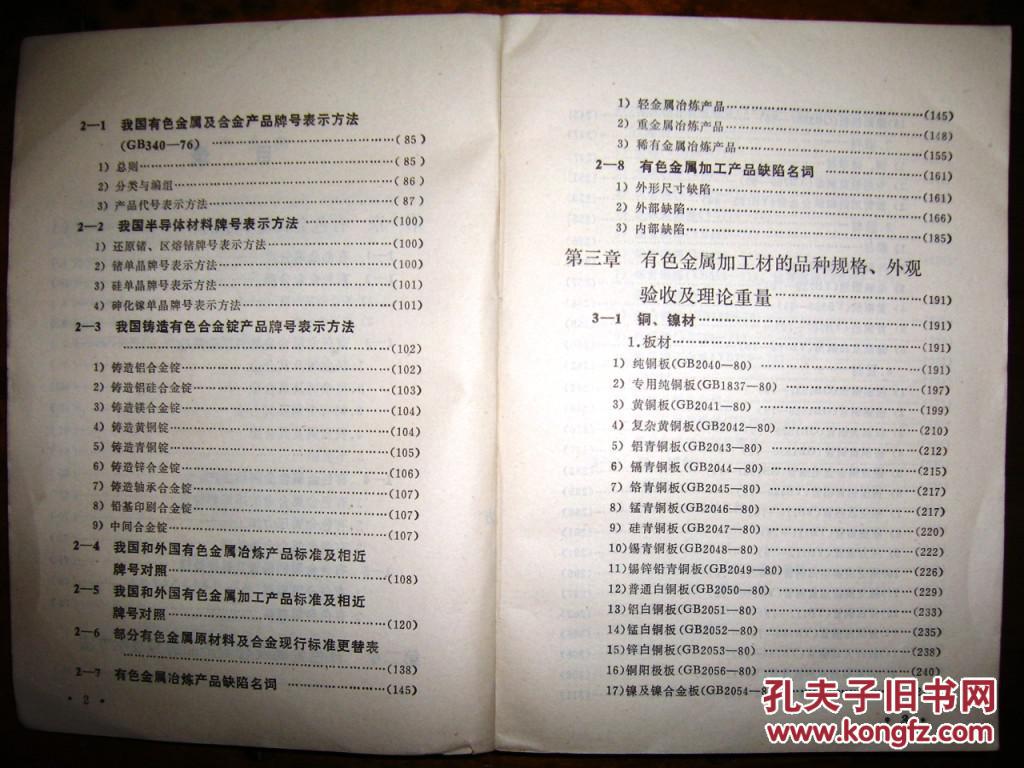 2—1 我国有色金属及合金产品牌号表示方法
(GB340—76) ……………………………(85)
1) 总则……………………………………(85)
2) 分类与编组……………………………(86)
3) 产品代号表示方法……………………(87)
2—2 我国半导体材料牌号表示方法 ………(100)
1) 还原锗、区熔锗牌号表示方法…………(100)
2) 锗单晶牌号表示方法…………………(100)
3) 硅单晶牌号表示方法…………………(101)
4) 砷化镓单晶牌号表示方法……………(101)
2—3 我国铸造有色合金锭产品牌号表示方法
……………………………………………(102)
1) 铸造铝合金锭…………………………(102)
2) 铸造铝硅合金锭………………………(103)
3) 铸造镁合金锭…………………………(104)
4) 铸造黄铜锭……………………………(104)
5) 铸造青铜锭……………………………(105)
6) 铸造锌合金锭…………………………(106)
7) 铸造轴承合金锭………………………(107)
8) 铅基印刷合金锭………………………(107)
9) 中间合金锭……………………………(107)
2—4 我国和外国有色金属冶炼产品标准及相近
牌号对照……………………………………(108)
2—5 我国和外国有色金属加工产品标准及相近
牌号对照……………………………………(120)
2—6 部分有色金属原材料及合金现行标准更替表
……………………………………………(138)
2—7 有色金属冶炼产品缺陷名词 …………(145)
• 2 •
1) 轻金属冶炼产品………………………(145)
2) 重金属冶炼产品………………………(148)
3) 稀有金属冶炼产品……………………(155)
2—8 有色金属加工产品缺陷名词 …………(161)
1) 外形尺寸缺陷…………………………(161)
2) 外部缺陷………………………………(166)
3) 内部缺陷………………………………(185)
第三章 有色金属加工材的品种规格、外观
验收及理论重量……………………………(191)
3—1 铜、镍材………………………………(191)
1.板材………………………………………(191)
1) 纯铜板(GB2040—80)…………………(191)
2) 专用纯铜板(GB1837—80)……………(197)
3) 黄铜板(GB2041—80) …………………(199)
4) 复杂黄铜板(GB2042—80)……………(210)
5) 铝青铜板(GB2043—80)………………(212)
6) 镉青铜板(GB2044—80)………………(215)
7) 铬青铜板(GB2045—80)………………(217)
8) 锰青铜板(GB2046—80)………………(217)
9) 硅青铜板(GB2047—80)………………(220)
10)锡青铜板(GB2048—80)………………(222)
11)锡锌铅青铜板(GB2049—80)…………(226)
12)普通白铜板(GB2050—80)……………(229)
13)铝白铜板(GB2051—80)………………(233)
14)锰白铜板(GB2052—80)………………(235)
15)锌白铜板(GB2053—80)………………(238)
16)铜阳极板(GB2056—80)………………(240)
17)镍及镍合金板(GB2054—8
• 3 •
孔夫子旧书网
www.kongfz.com